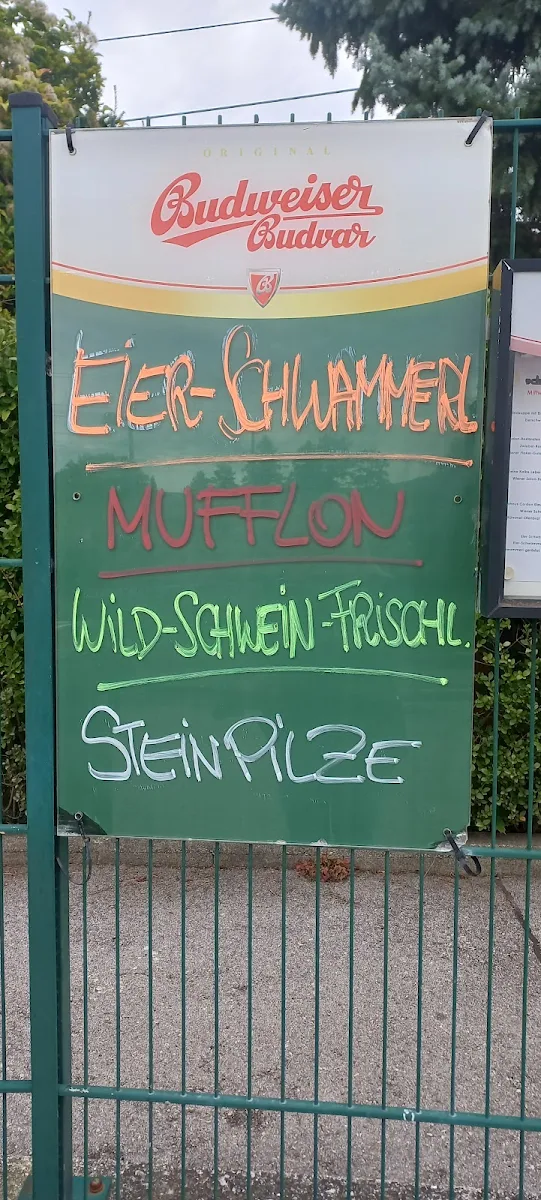 ORIGINAL
Budweiser
Budvar
EIER-SCHWAMMERL
MUFFLON
WILD-SCHWEIN-FRISCHL.
STEINPILZE